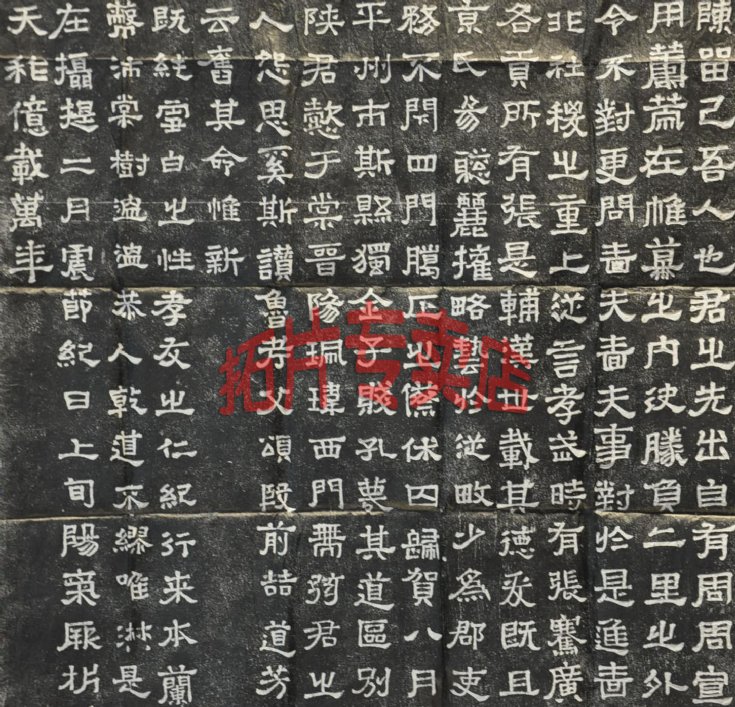 陳留己吾人也君之先出自有周周宣
用籌策在帷幕之内決勝負二里之外
令不對更問嗇夫嗇夫事對於是進嗇
非社稷之重上從言孝武時有張騫廣
各貢所有張是輔漢世載其德爰既且
京氏易聰麗權略藝於從畋少為郡吏
務不閇四門騰正之蔡休囚歸賀八月
平州市斯縣獨全子賤孔蔑其道區別
陝君懿于棠晉陽珮瑋西門帶弦君之
人怨思奚斯讚魯考父頌殷前喆道芳
云舊其命惟新
既純雪白之性孝友之仁紀行来本蘭
幣沛棠樹温温恭人乾道不繆唯淑是
在攝提二月震節紀日上旬陽氣厥析
天祚億載萬年
拓片专卖店